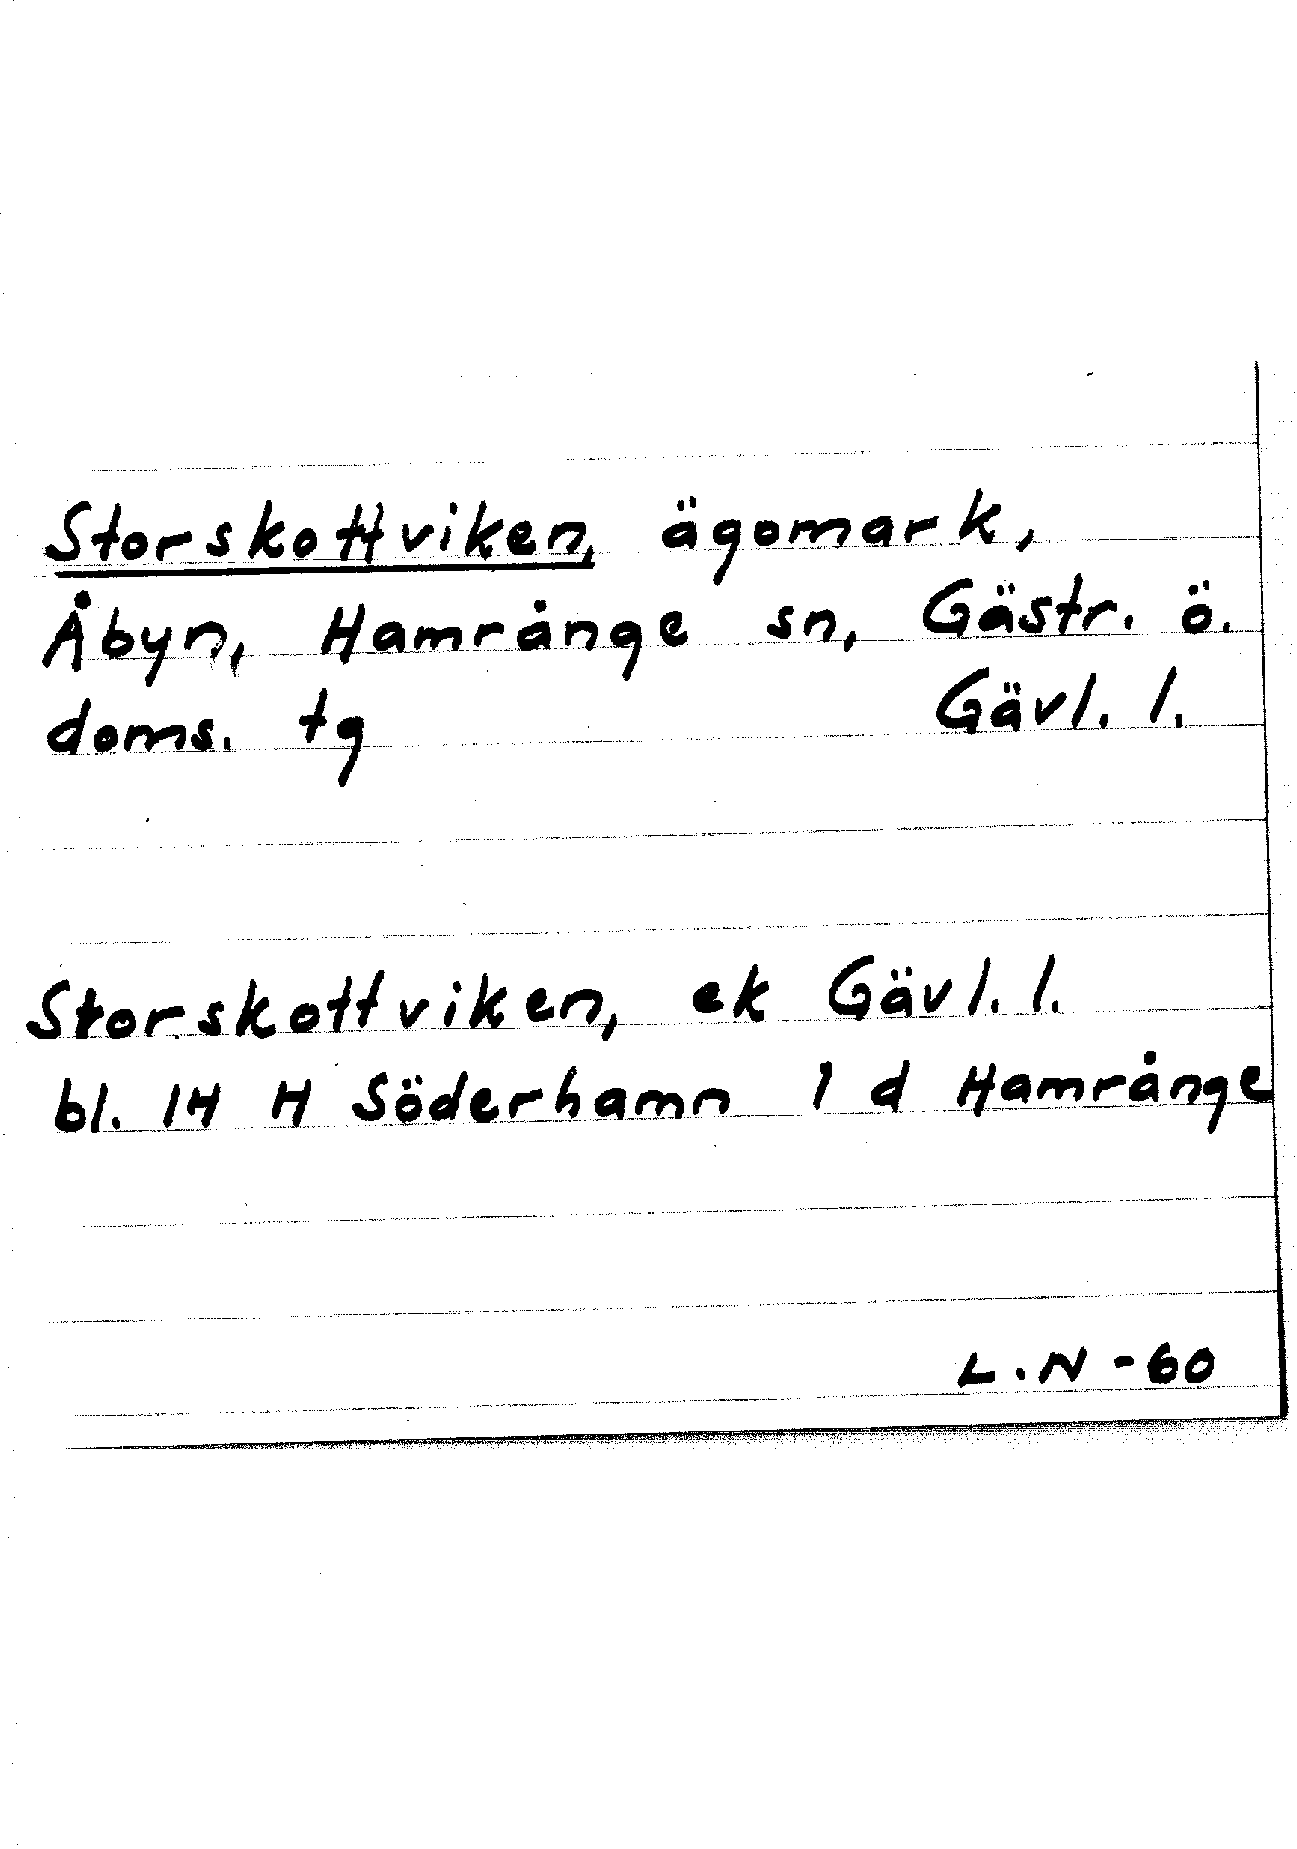 Storskottviken, ägomark,
Åbyn, Hamrånge sn, Gästr. ö.
doms. tg Gävl. l.
Storskottviken, ek Gävl. l.
bl. 14 H Söderhamn 1 d Hamrånge
L.N -60